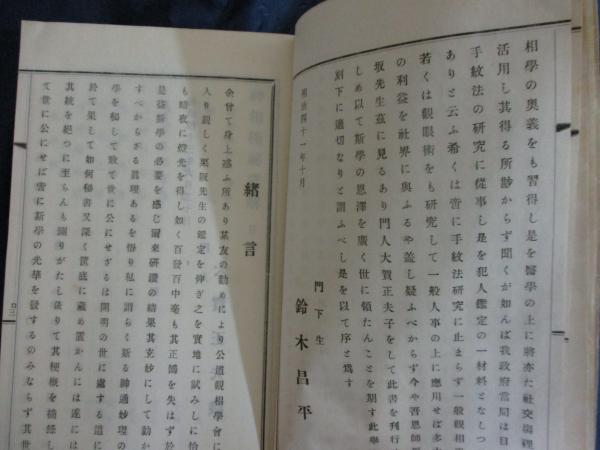 相學の奧義をも習得し是を醫學の上に將亦た社交與理
活用し其得る所尠からず聞くが如んば我政府當局は目
手紋法の研究に從事し是を犯人鑑定の一材料となしつ
ありと云ふ希くは啻に手紋法研究に止まらず一般觀相
若くは觀眼術をも研究して一般人事の上に應用せば多
の利益を社界に與ふるや蓋し疑ふべからず今や吾恩師
坂先生茲に見るあり門人大賀正夫子をして此書を刊行
しめ以て斯學の恩澤を廣く世に頒たんことを期す此學
刻下に適切なりと謂ふべし是を以て序と爲す
明治四十一年十月
門下生
鈴木昌平
緒言
余曾て身上惑ふ所あり某友の勸めにより公道觀相學會に
入り親しく栗阪先生の鑑定を仰ぎ之を實地に試みしに恰
も暗夜に燈光を得し如く百發百中毫も其正鵠を失はず於
是益斯學の必要を感じ爾來研鑽の結果其玄妙にして動か
すべからざる眞理あるを悟り私に謂らく斯る神通妙理の
學を秘して敢て世に公にせざるは開明の世に處する道に
於て果して如何秘書又深く筐底に藏め置かんには遂には
其統を絕つに至らんも測りがたし依りて其梗槪を補綴し
て世に公にせば啻に斯學の光華を發するのみならず其世